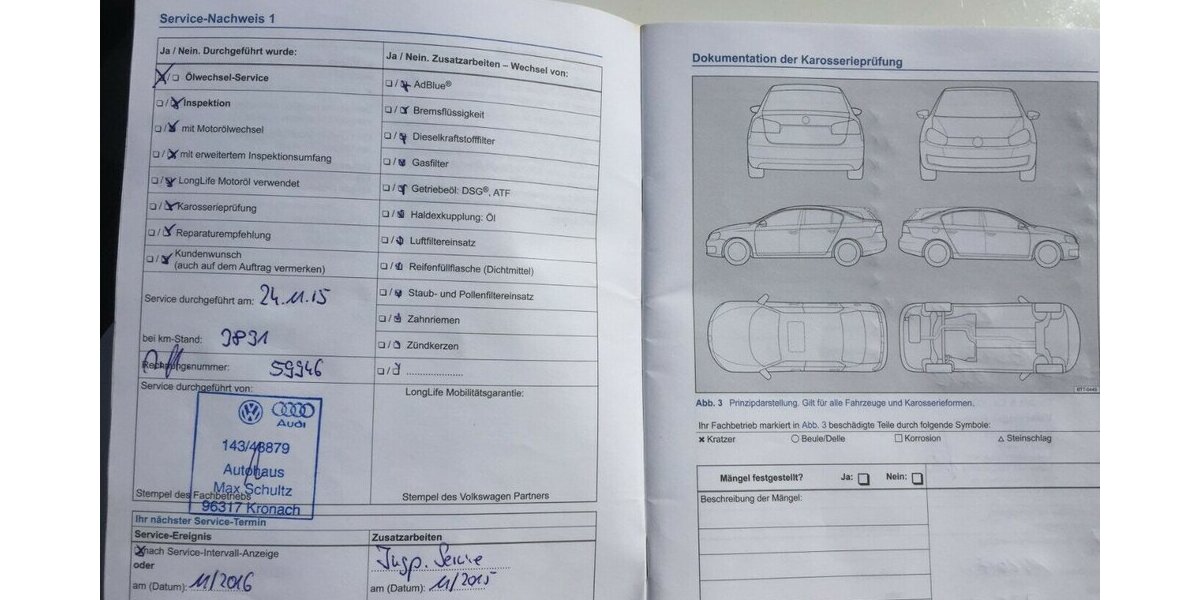 Service-Nachweis 1
Ja / Nein. Durchgeführt wurde:
Ölwechsel-Service
Inspektion
mit Motorölwechsel
mit erweitertem Inspektionsumfang
LongLife Motoröl verwendet
Karosserieprüfung
Reparaturempfehlung
Kundenwunsch
(auch auf dem Auftrag vermerken)
Service durchgeführt am: 24.11.15
bei km-Stand: 9831
Rechnungsnummer: 59946
Service durchgeführt von:
Audi
143/48879
Autohaus
Max Schultz
96317 Kronach
Stempel des Fachbetriebs
Ja / Nein. Zusatzarbeiten – Wechsel von:
AdBlue®
Bremsflüssigkeit
Dieselkraftstofffilter
Gasfilter
Getriebeöl: DSG®, ATF
Haldexkupplung: Öl
Luftfiltereinsatz
Reifenfüllflasche (Dichtmittel)
Staub- und Pollenfiltereinsatz
Zahnriemen
Zündkerzen
LongLife Mobilitätsgarantie:
Stempel des Volkswagen Partners
Ihr nächster Service-Termin
Service-Ereignis
nach Service-Intervall-Anzeige
oder
am (Datum): 11/2016
Zusatzarbeiten
Insp. Service
am (Datum): 11/2015
Dokumentation der Karosserieprüfung
Abb. 3 Prinzipdarstellung. Gilt für alle Fahrzeuge und Karosserieformen.
Ihr Fachbetrieb markiert in Abb. 3 beschädigte Teile durch folgende Symbole:
Kratzer Beule/Delle Korrosion Steinschlag
Mängel festgestellt? Ja: Nein:
Beschreibung der Mängel: